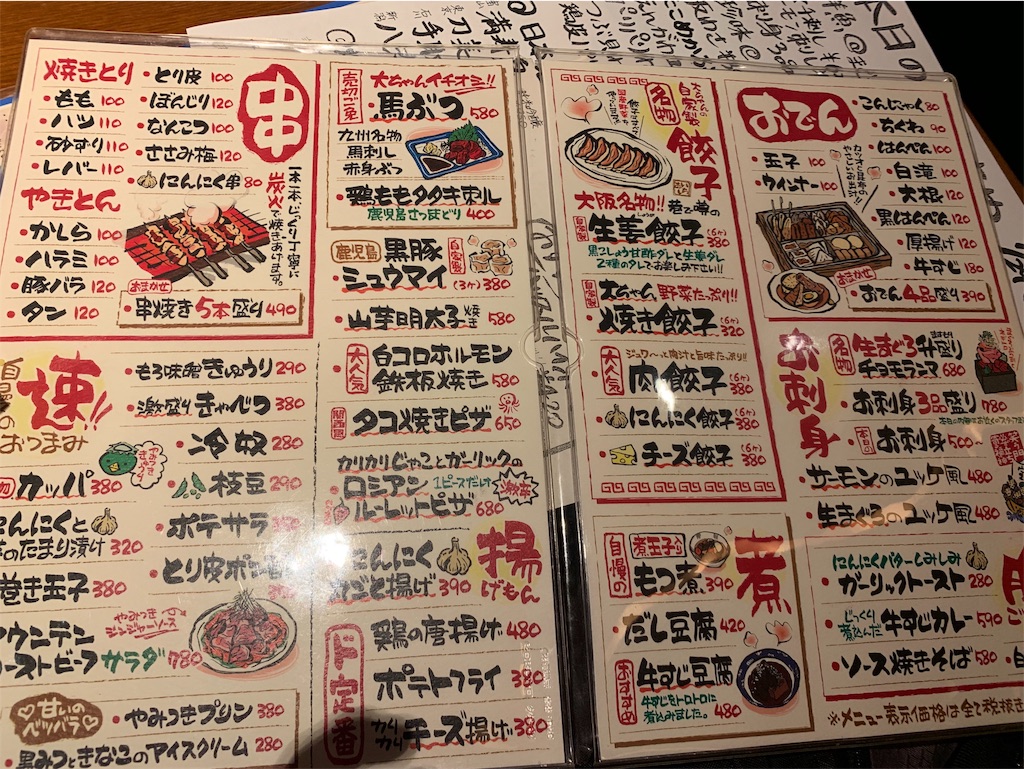 焼きとり
もも 100
ハツ 110
砂ずり 110
レバー 110
とり皮 100
ぼんじり 120
なんこつ 100
ささみ梅 120
にんにく串 80
串
一本一本じっくり丁寧に
炭火で焼きあげます。
やきとん
かしら 100
ハラミ 100
豚バラ 120
タン 120
おまかせ
串焼き5本盛り 490
速!!
のおつまみ
もろ味噌きゅうり 290
激盛りきゃべつ 380
冷奴 280
枝豆 290
ポテサラ
とり皮ポン酢
カッパ 380
にんにくと
のたまり漬け 320
巻き玉子 380
ウンテン
ーストビーフサラダ 780
甘いの
ベツバラ
やみつきプリン 380
黒みつときなこのアイスクリーム 280
売切ご免
大ちゃんイチオシ!!
馬ぶつ 580
九州名物
馬刺し
赤身ぶつ
鶏ももタタキ刺し
鹿児島さつまどり 400
鹿児島 黒豚
シュウマイ (3ケ) 380
自家製
山芋明太子焼き 580
大人気
白コロホルモン
鉄板焼き 580
関西風
タコメ焼きピザ 650
カリカリじゃことガーリックの
ロシアン 1ピースだけ
ルーレットピザ 680
激辛
にんにく
丸ごと揚げ 390
揚げもん
ド定番
鶏の唐揚げ 480
ポテトフライ 380
カリカリ チーズ揚げ 380
名物
自家製
餃子
大阪名物!! 巷で噂の
自家製
生姜餃子 (6ケ) 380
黒こしょう甘酢ダレと生姜ダレ
2種のタレでお楽しみ下さい!!
自家製
大ちゃん 野菜たっぷり!!
焼き餃子 (6ケ) 320
大人気
ジュワ〜っと肉汁と旨味たっぷり!!
肉餃子 (6ケ) 380
にんにく餃子 (6ケ) 380
チーズ餃子 (6ケ) 380
自慢の
煮玉子入り
もつ煮 390
煮
だし豆腐 420
おすすめ
牛すじ豆腐
牛すじをトロトロに
煮込みました。 480
おでん
玉子 100
ウインナー 100
こんにゃく 80
ちくわ 90
はんぺん 100
白滝 100
大根 120
黒はんぺん 120
厚揚げ 120
牛すじ 180
おまかせ
おでん4品盛り 390
お刺身
名物
生まぐろ
チョモランマ 680
お刺身3品盛り 780
本日の
お刺身 500
サーモンのユッケ風 480
生まぐろのユッケ風 480
にんにくバターしみしみ
ガーリックトースト 280
じっくり
煮込んだ 牛すじカレー 590
ソース焼きそば 580